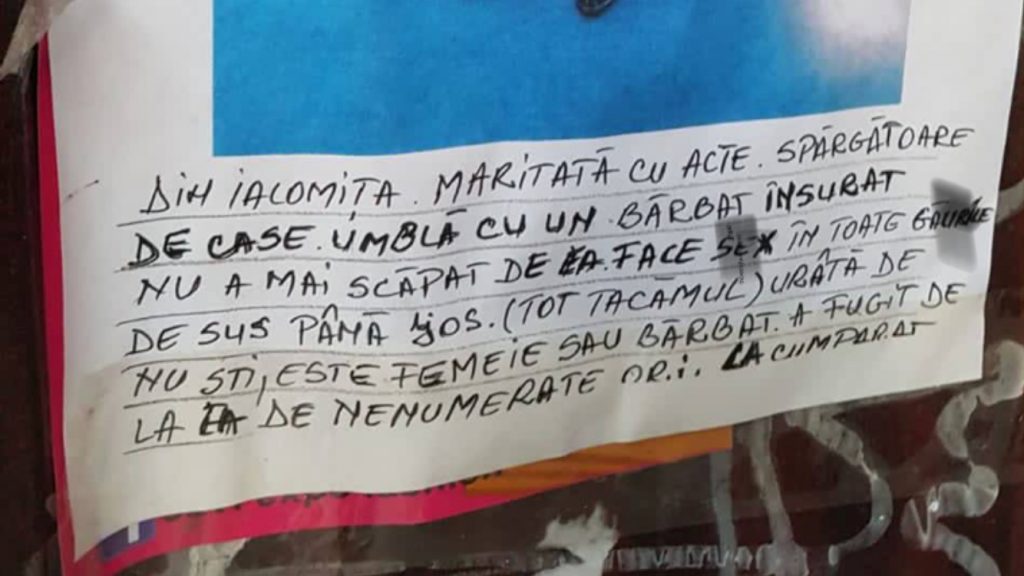 DIN IALOMIȚA. MARITATĂ CU ACTE. SPĂRGĂTOARE
DE CASE. UMBLĂ CU UN BĂRBAT ÎNSURAT
NU A MAI SCĂPAT DE EA. FACE SEX ÎN TOATE GĂURILE
DE SUS PÂNĂ JOS. (TOT TACÂMUL) URÂTĂ DE
NU STI, ESTE FEMEIE SAU BĂRBAT. A FUGIT DE
LA EA DE NENUMERATE ORI. LA CUMPARAT